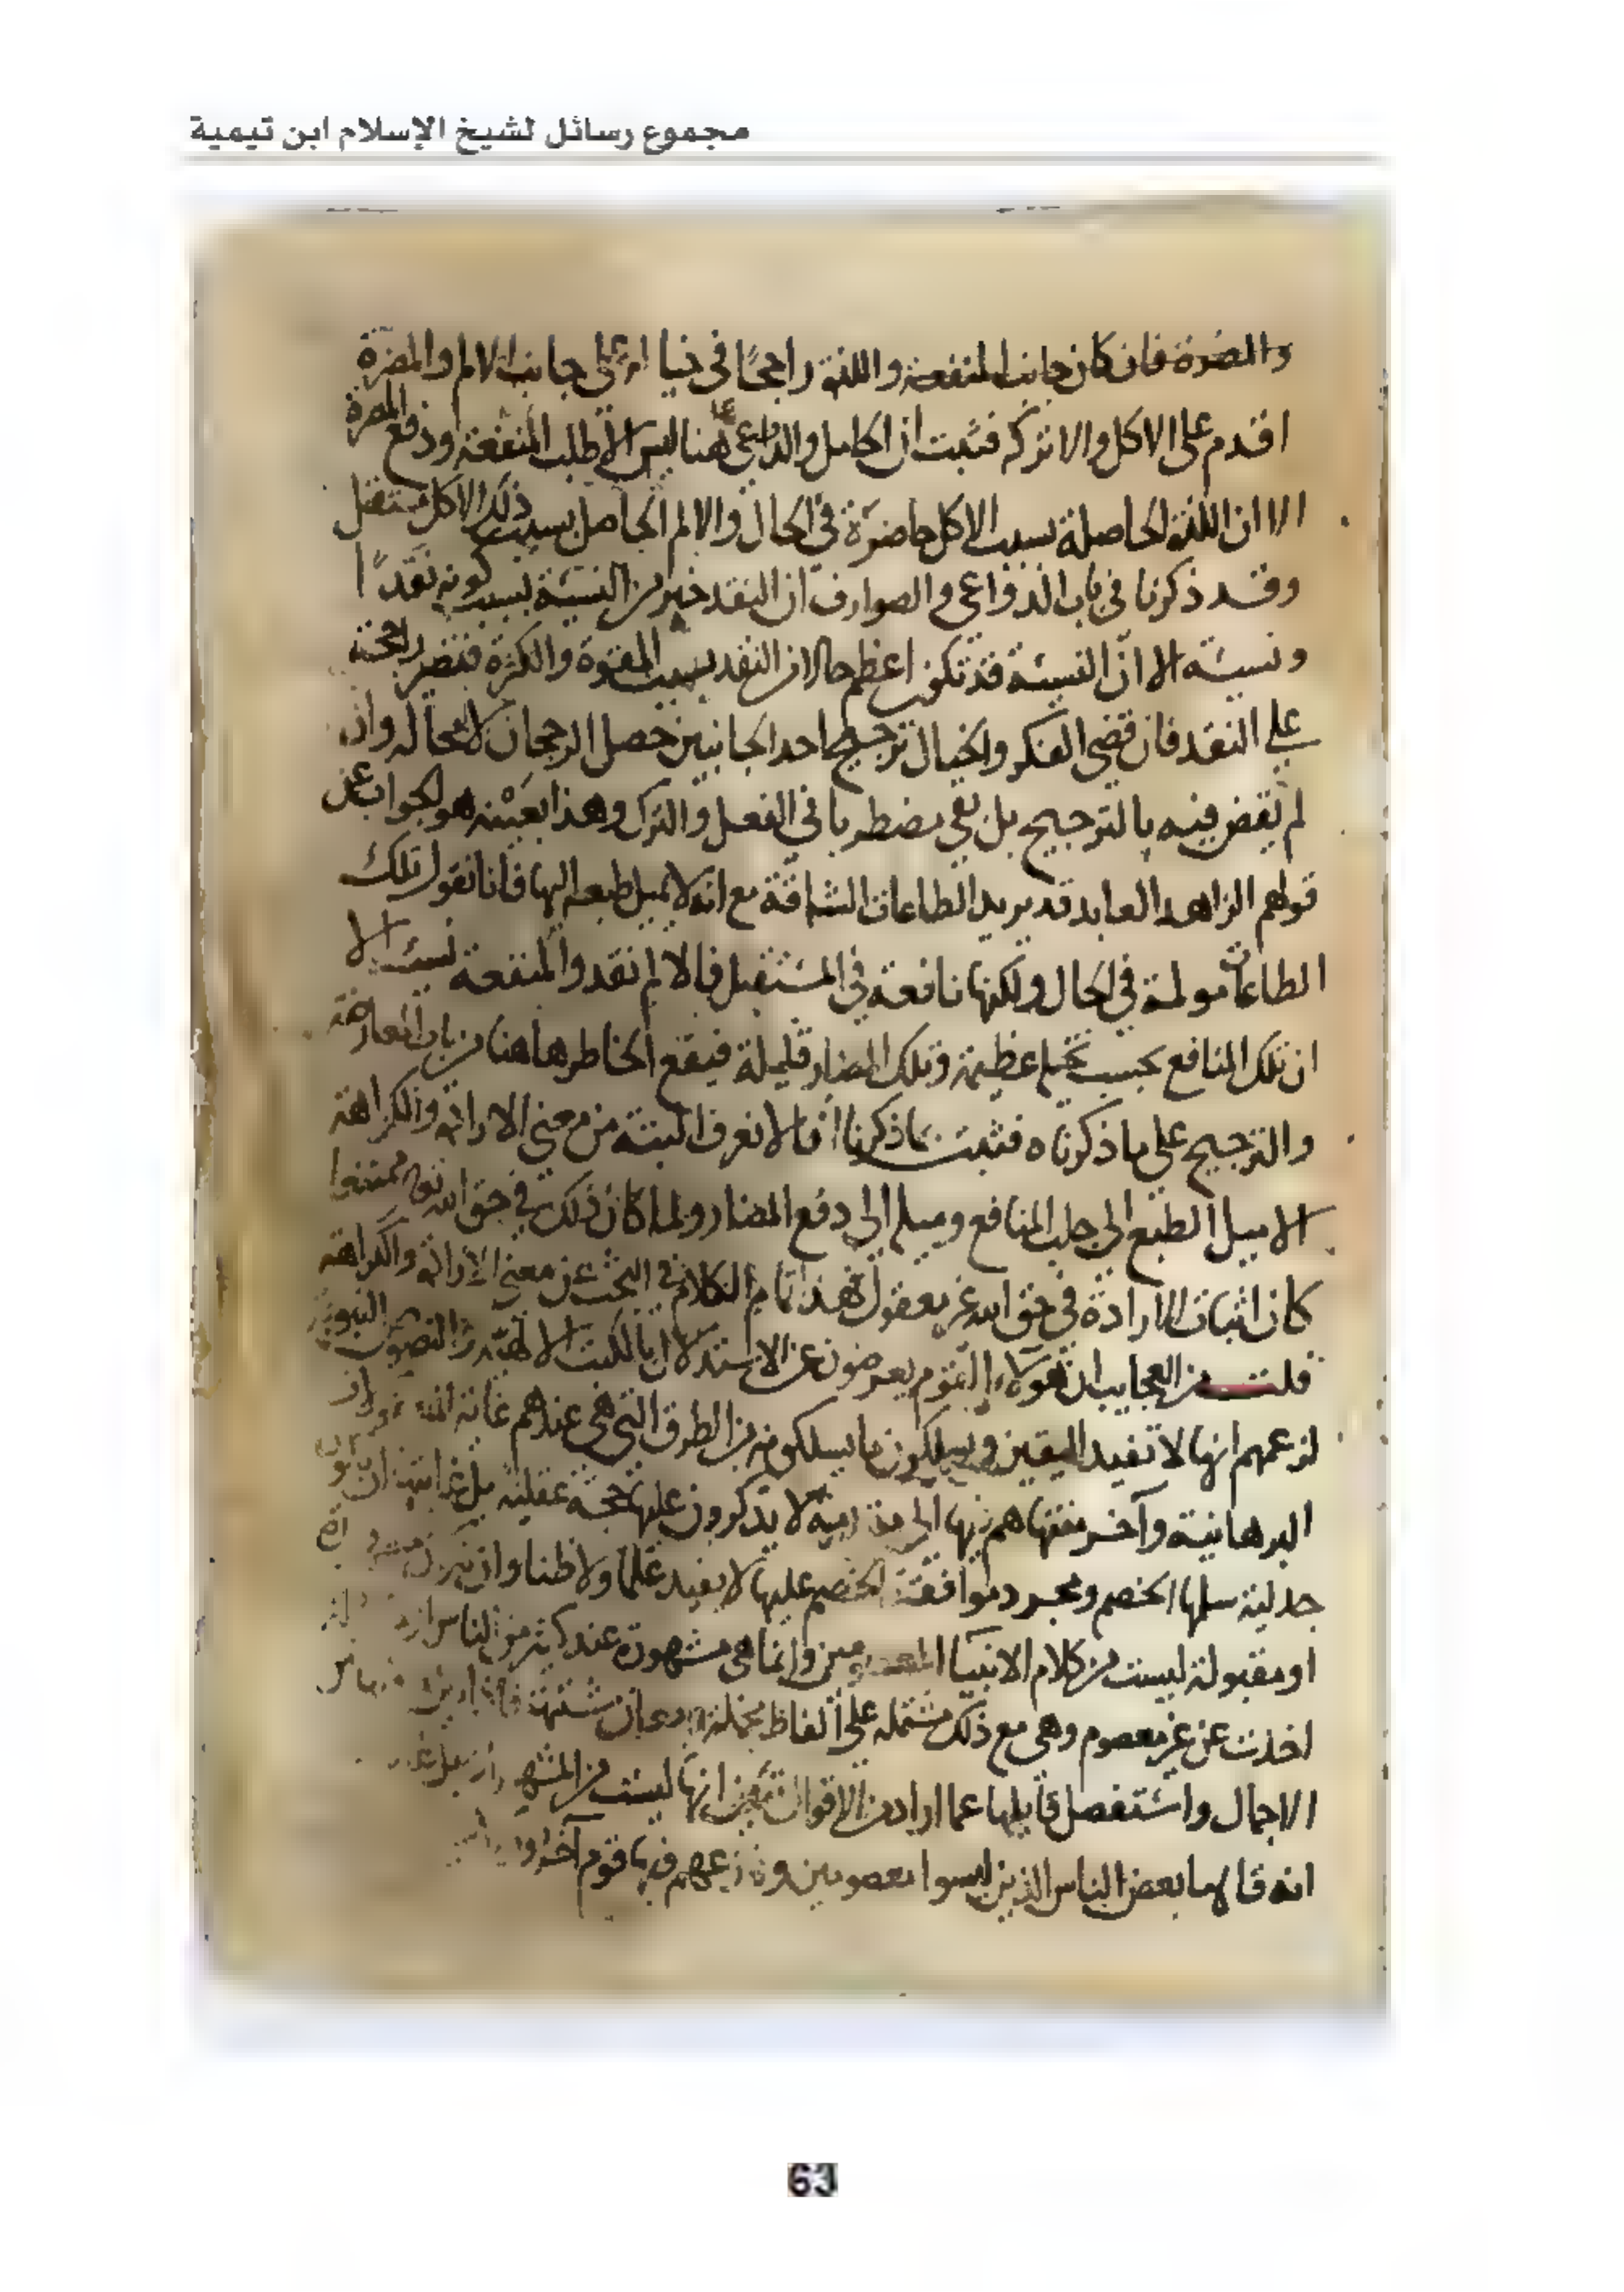 مجموع رسائل لشيخ الإسلام ابن تيمية
والمضرة فان كان جانب المنفعة واللذة راجحًا في على جانب الالم والمضرة
اقدم على الاكل والا تركه فثبت ان الحامل والداعي هنا ليس الا طلب المنفعة ودفع المضرة
الا ان اللذة الحاصلة بسبب الاكل حاضرة في الحال والالم الحاصل بسبب ذلك الاكل مستقبل
وقد ذكرنا في باب الدواعي والصوارف ان النقد خير من النسيئة بسبب كونه نقدًا
ونسيئة الا ان النسيئة قد تكون اعظم حالا من النقد بسبب القوة والكثرة فتصير راجحة
على النقد فان قضى الفكر والخيال ترجيح احد الجانبين حصل الرجحان لا محالة وان
لم يقض فيه بالترجيح بل بقي مضطربا في الفعل والترك وهذا بعينه هو الجواب عن
قولهم الزاهد العابد قد يريد الطاعات الشاقة مع انه لا يميل طبعه اليها فانا نقول تلك
الطاعات مولمة في الحال ولكنها نافعة في المستقبل فالالم نقد والمنفعة نسيئة الا
ان تلك المنافع بحسب عظيمة وتلك المضار قليلة فيقع الخاطر هاهنا من باب المعارضة
والترجيح على ما ذكرناه فثبت بما ذكرنا انا لا نعرف البتة من معنى الارادة والكراهة
الا ميل الطبع الى جلب المنافع وميله الى دفع المضار ولما كان ذلك في حق الله ممتنعا
كان اثبات الارادة في حق الله غير معقول فهذا تمام الكلام في البحث عن معنى الارادة والكراهة
قلت من العجايب ان هؤلاء القوم يعرضون عن الاستدلال بالكتب الالهية والنصوص النبوية
لزعمهم انها لا تفيد اليقين ويسلكون ما يسلكونه من الطرق التي هي عندهم غاية
البرهانية وآخر منتهاهم فيها الى مقدمة لا يذكرون عليها حجة عقلية بل غايتها ان
جدلية سلمها الخصم ومجرد موافقة الخصم عليها لا يفيد علما ولا ظنا وان
او مقبولة ليست من كلام الانبيا المعصومين وانما هي مشهورة عند كثير من الناس
اخذت عن غير معصوم وهي مع ذلك مشتملة على الفاظ مجملة
الاجمال واستفصل قايلها عما اراد من الاقوال تبين انها ليست من
انه قالها بعض الناس الذين ليسوا معصومين فيها قوم آخرون
63